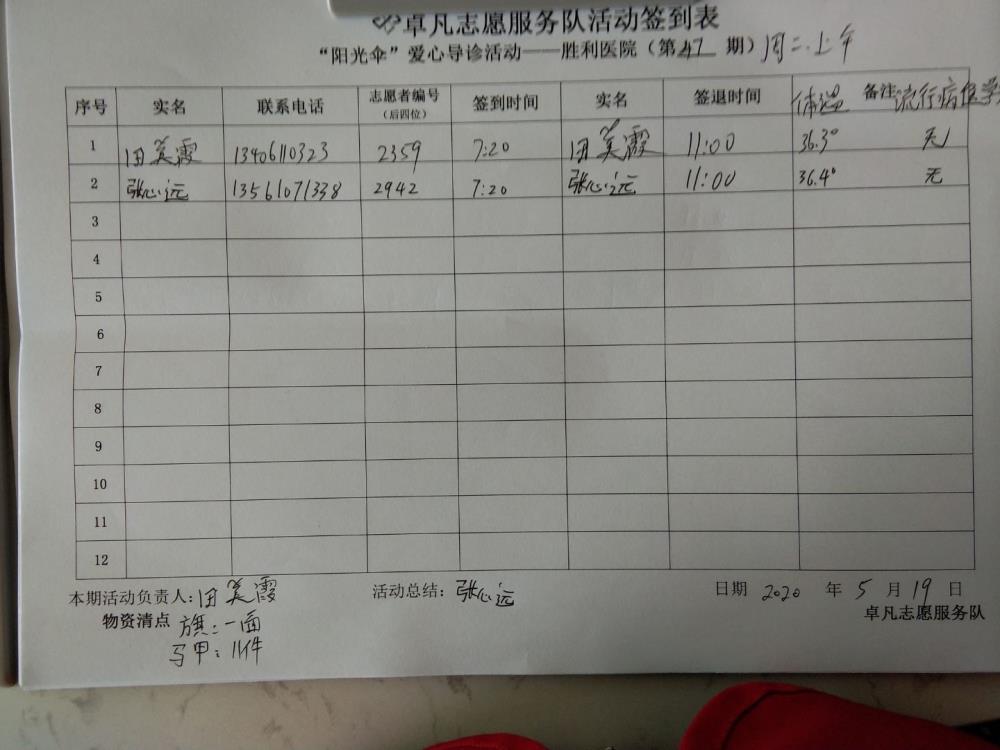 卓凡志愿服务队活动签到表
“阳光伞”爱心导诊活动——胜利医院（第47期）周二.上午
序号 实名 联系电话 志愿者编号（后四位） 签到时间 实名 签退时间 体温 备注 流行病医学
1 田美霞 13406110323 2359 7:20 田美霞 11:00 36.3° 无
2 张心远 13561071338 2942 7:20 张心远 11:00 36.4° 无
3
4
5
6
7
8
9
10
11
12
本期活动负责人:田美霞 活动总结：张心远 日期 2020 年 5 月 19 日
物资清点 旗：一面 卓凡志愿服务队
马甲：11件